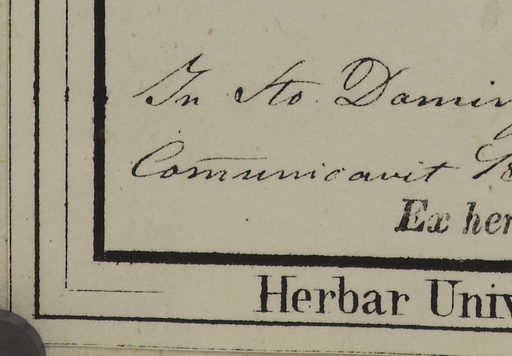 In Sto Domin
Comunicavit
Ex her
Herbar Univ